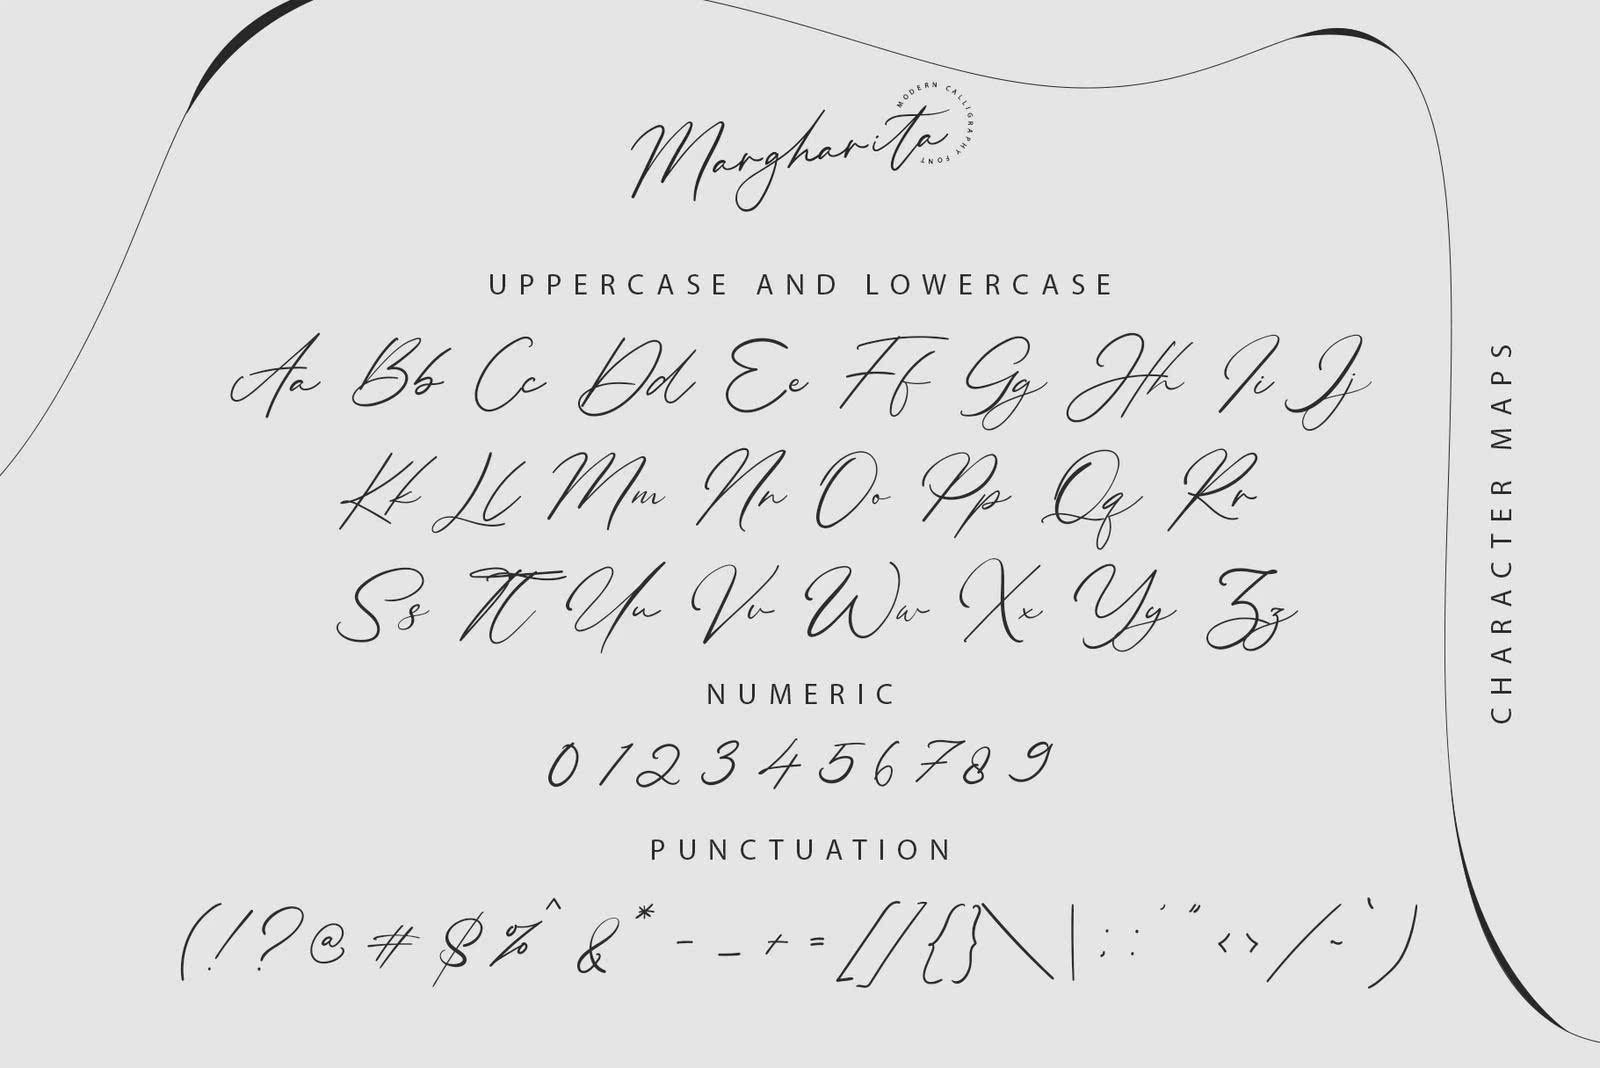 Margharita
MODERN CALLIGRAPHY FONT
UPPERCASE AND LOWERCASE
Aa Bb Cc Dd Ee Ff Gg Hh Ii Jj
Kk Ll Mm Nn Oo Pp Qq Rr
Ss Tt Uu Vv Ww Xx Yy Zz
NUMERIC
0 1 2 3 4 5 6 7 8 9
PUNCTUATION
( ! ? @ # $ % ^ & * - _ + = [ ] { } \ | ; : ' " < > / ~ ` )
CHARACTER MAPS